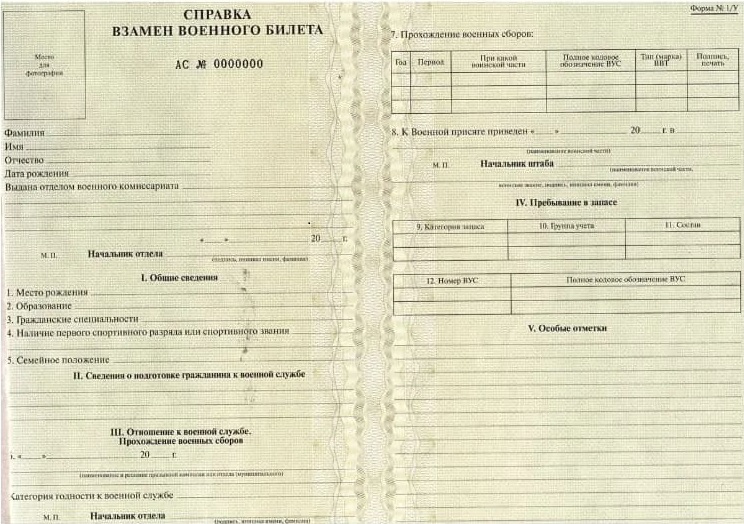 СПРАВКА
ВЗАМЕН ВОЕННОГО БИЛЕТА
АС № 0000000
Место
для
фотографии
Фамилия
Имя
Отчество
Дата рождения
Выдана отделом военного комиссариата
« » 20 г.
М. П. Начальник отдела
(подпись, инициал имени, фамилия)
I. Общие сведения
1. Место рождения
2. Образование
3. Гражданские специальности
4. Наличие первого спортивного разряда или спортивного звания
5. Семейное положение
II. Сведения о подготовке гражданина к военной службе
III. Отношение к военной службе.
Прохождение военных сборов
« » 20 г.
(наименование и решение призывной комиссии или отдела (муниципального)
Категория годности к военной службе
М. П. Начальник отдела
(подпись, инициал имени, фамилия)
Форма № 1/У
7. Прохождение военных сборов:
Год Период При какой воинской части Полное кодовое обозначение ВУС Тип (марка) ВВТ Подпись, печать
8. К Военной присяге приведен « » 20 г. в
(наименование воинской части)
М. П. Начальник штаба
(наименование воинской части,
воинское звание, подпись, инициал имени, фамилия)
IV. Пребывание в запасе
9. Категория запаса 10. Группа учета 11. Состав
12. Номер ВУС Полное кодовое обозначение ВУС
V. Особые отметки